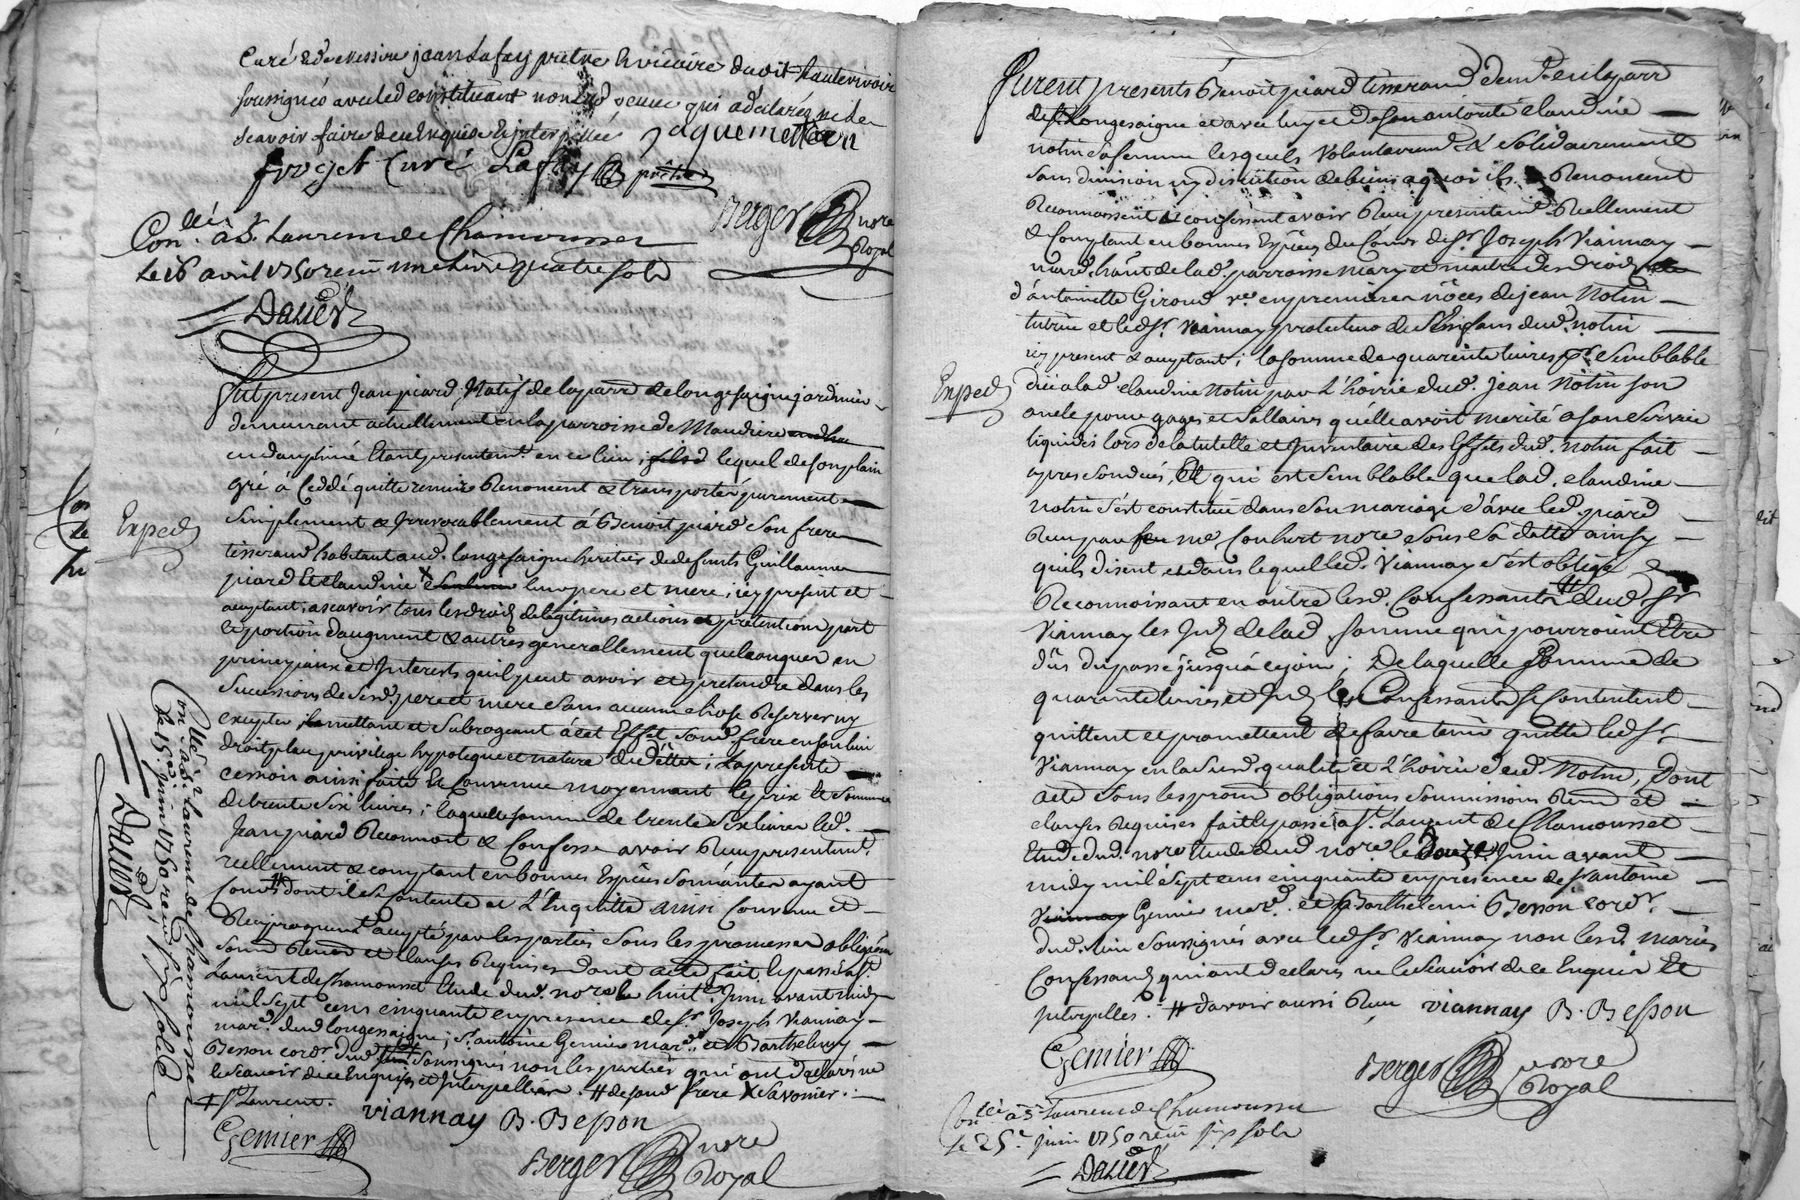 Curé & de Messire jean Lafay prêtre & vicaire dudit hauterivoire
soussignés avec led constituant non lad veuve qui a déclaré ne le
scavoir faire de ce Enquise & interpellée jaquemetton
froget Curé Lafay prêtre
Berger nore Royal
Con.lé à St. Laurem de Chamousset
le 16 avril 1750 receu une livre quatre sols
Dauer
Fut present Jean piard Natif de la parr de longesaigne jardinier
demeurant actuellement en la parroisse de
en dauphiné Etant presentemt. en ce lieu, lequel de son plain
gré à Ceddé quitte remis Renoncent & transporter purement
simplement & Irrevocablement à Benoit piard son frere
tisserand habitant aud. longesaigne heritier de defunts Guillaume
piard Et claudine leurs pere et mere, icy présent et
acceptant, ascavoir tous les droids de légitimes actions et prétentions part
et portion d'augment & autres generallement quelconques en
principaux et Interests quil peut avoir et prétendre dans les
sucessions de sesd. pere et mere sans aucune chose Reserver ny
excepter, lemettant et subrogeant à cet Effet sond. frere en son lieu
droit place privilege hypoteque et nature de dette; La présente
cession ainsi faite Et Convenue moyennant le prix et somme
de trente six livres; laquelle somme de trente six livres led.
Jean piard Reconnoit & Confesse avoir Reçu presentemt.
reellement & comptant en bonnes Espèces sonnantes ayant
Cours # dont il se Contente et l'Enquitte ainsi Convenu et
Reciproquemt. accepté par les parties sous les promesses obligations
soumis Renon et clauses Requises dont acte fait & passé à St.
Laurent de Chamousset Etude dud. nore le huit. Juin avant midy
mil sept cens cinquante en presence de Sr. Joseph Viannay
mard. dud longesaigne; Sr. antoine Gemier mard. et Barthelemy
Besson cordr. dud. soussignés non les parties qui ont déclaré ne
le scavoir de ce Enquises et Interpellées. # de sond frere X Savonier.
# St Laurent. viannay B. Besson
Gemier
Berger nore Royal
Exped
Con.llé à St. Laurent de Chamousset
Le 15. Juin 1750 receu six sols
Dauer
Furent présents Benoit piard tisserand demt. en la parr
de longesaigne et avec luy et de son autorité claudine
notin sa femme lesquels volontairemt. & solidairement
sans division ny discution de biens a quoi ils Renoncent
Reconnoissent & confessent avoir Reçu presentemt. Reellement
& Comptant en bonnes Espèces du Cours de Sr. Joseph Viannay
mard. hant. de lad. parroisse mary et maitre des droids
d'antoinette Giroud ve. en premieres nôces de jean Notin
tutrice et led Sr. Viannay protuteur des Enfans dud. notin
icy present & acceptant; la somme de quarente livres pr. semblable
düe a lad claudine Notin par L'hoirie dud. Jean Notin son
oncle pour gages et sallaires quelle avoit merité a son service
liquidés lors de la tutelle et Inventaire des Effets dud. notin fait
apres son decés, Et qui est semblable que lad. claudine
notin s'est constitué dans son mariage d'avec led. piard
Reçu par me Coubert nore sous sa datte ainsy
quils disent, et dans lequel led. Viannay s'est obligé
Reconnoissant en outre lesd. Confessants # dud. Sr.
Viannay les Ind. de lad. somme qui pourroient Etre
dûs du passé jusqu'a ce jour; De laquelle somme de
quarente livres et Ind. les Confessants se contentent
quittent et promettent de faire tenir quitte led Sr.
Viannay en la susd. qualité et L'hoirie dud Notin, Dont
acte sous les prom obligations soumissions Renon et
clauses Requises fait & passé a St. Laurent de Chamousset
Etude dud. nore Etude dud nore. le Douze. Juin avant
midy mil sept cens cinquante en presence de Sr antoine
Viannay Gemier mard. et Barthelemi Besson cordr.
dud. lieu soussignés avec led Sr. Viannay non lesd. mariés
Confessants qui ont déclaré ne le scavoir de ce Enquis Et
Interpellés. # d'avoir aussi Reçu viannay B. Besson
Gemier
Berger nore Royal
Exped
Con.lé à St. Laurem de Chamousset
le 25. juin 1750 receu six sols
Dauer